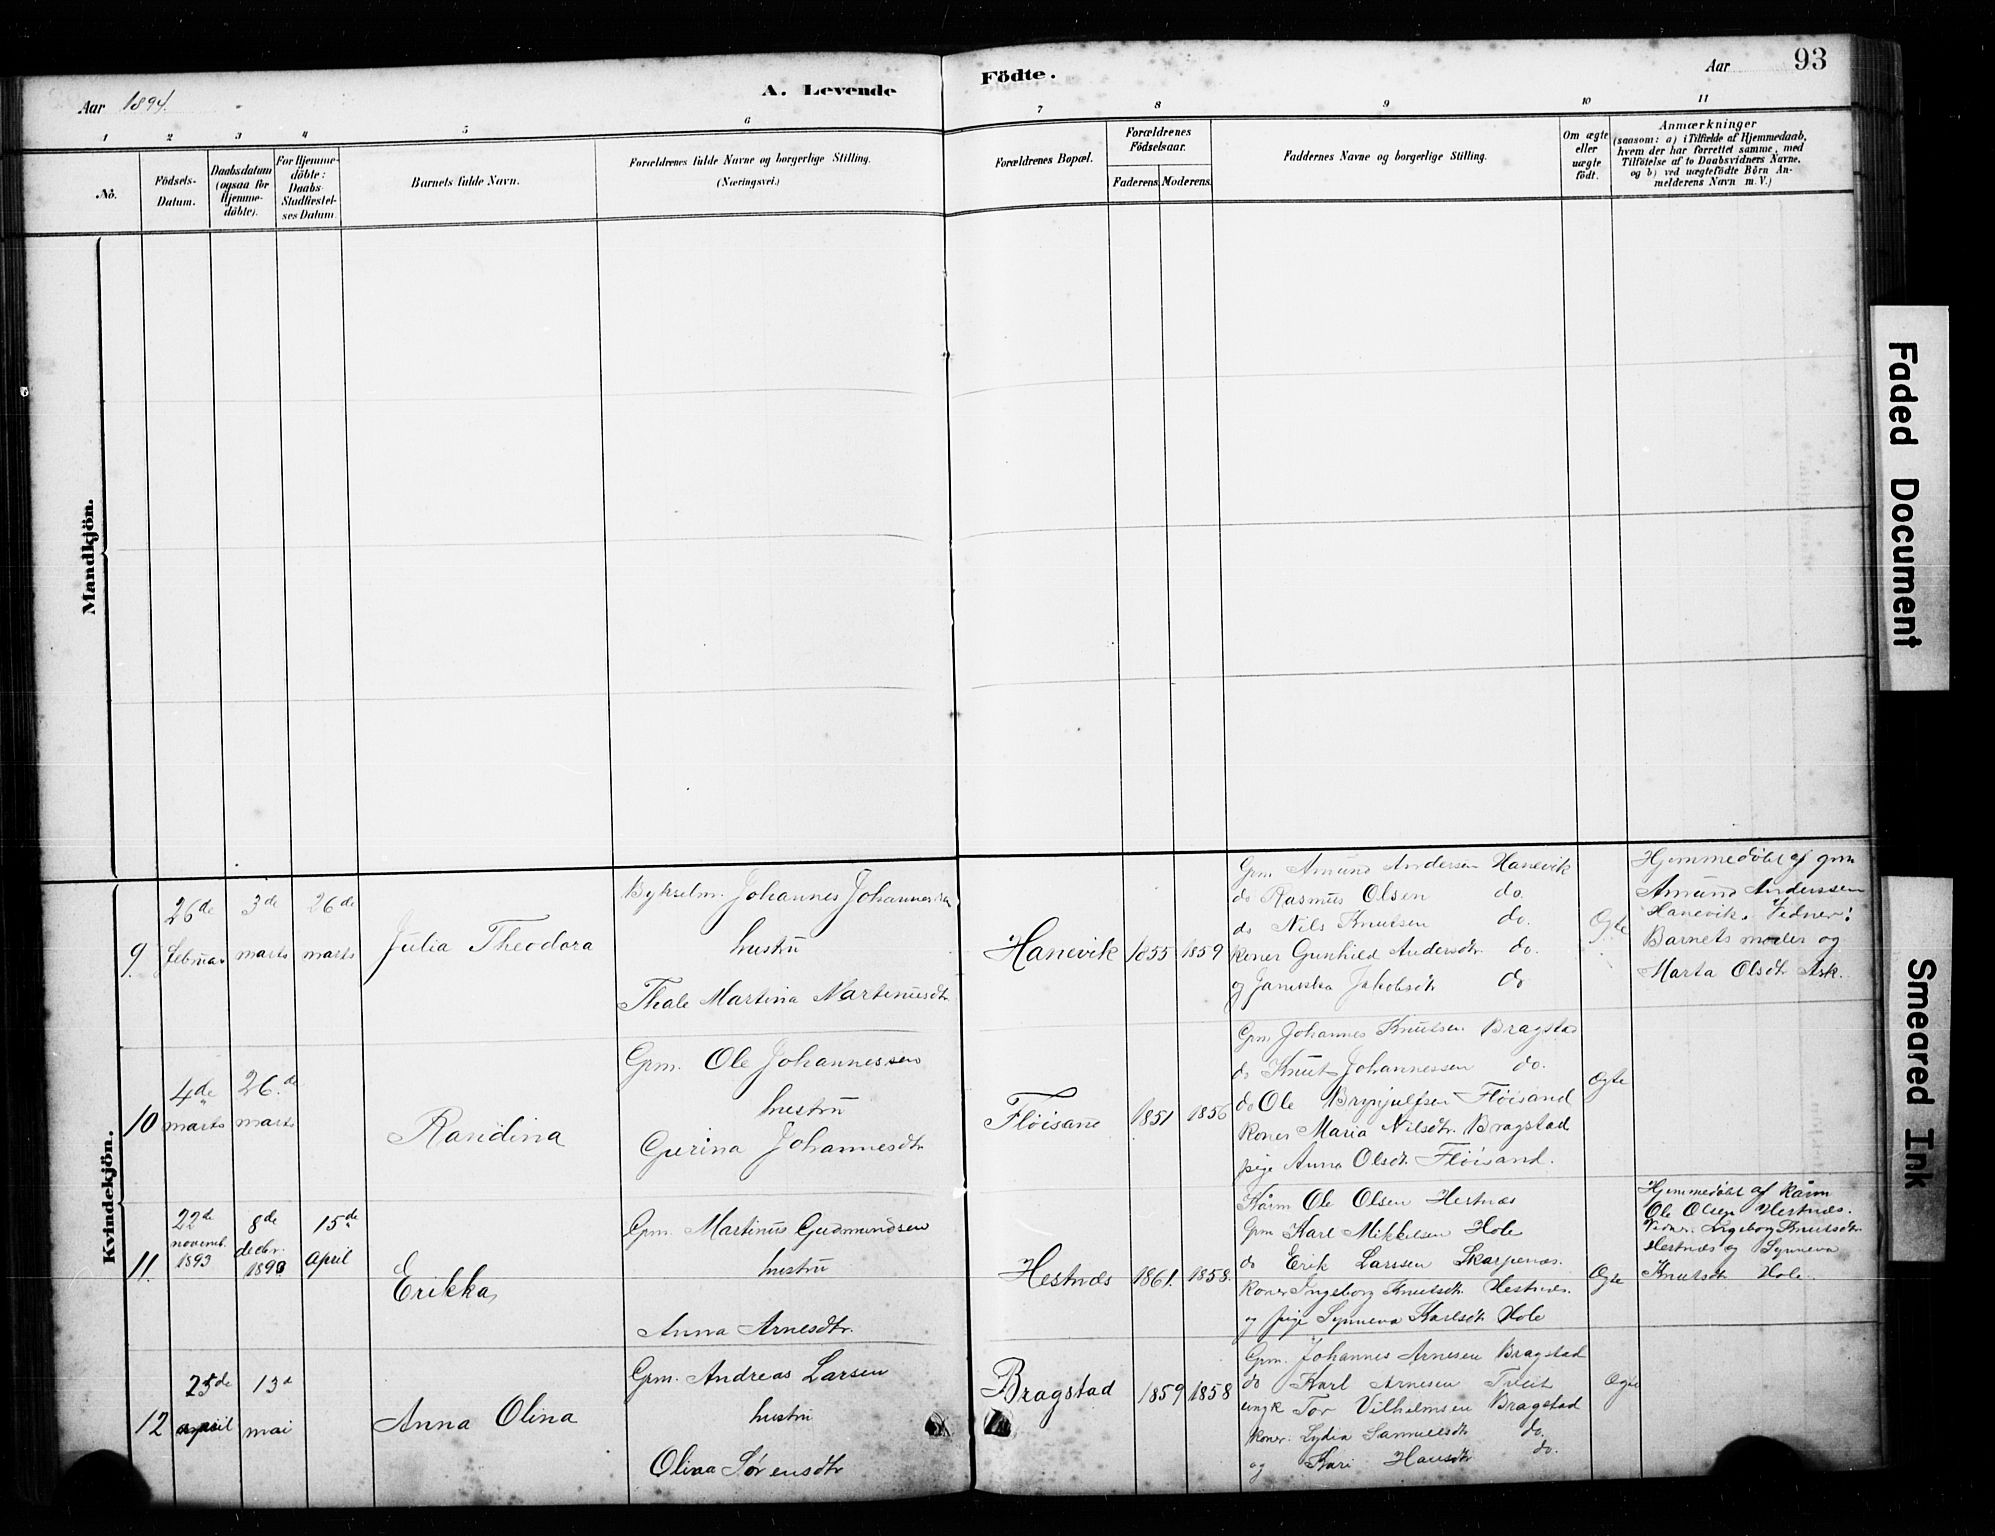 93
Aar 1894.
A. Levende
Födte.
Aar
1 2 3 4 5 6 7 8 9 10 11
No.
Födsels-
Datum.
Daabsdatum
(ogsaa for
Hjemme-
döbte).
For Hjemme-
döbte:
Daabs-
Stadfæstel-
ses Datum
Barnets fulde Navn.
Forældrenes fulde Navne og borgerlige Stilling.
(Næringsvei.)
Forældrenes Bopæl.
Forældrenes
Födselsaar.
Faderens. Moderens.
Faddernes Navne og borgerlige Stilling.
Om ægte
eller
uægte
födt.
Anmærkninger
(saasom: a) i Tilfælde af Hjemmedaab,
hvem der har forrettet samme, med
Tilföielse af to Daabsvidners Navne,
og b) ved uægtefödte Börn An-
melderens Navn m.V.)
Mandkjön.
Kvindekjön.
9
26de
februar
3de
marts
26de
marts
Julia Theodora
Bykselm. Johannes Johannessen
hustru
Thale Martina Martinusdtr
Hanevik
1855
1859
Gpm. Amund Andersen Hanevik
do Rasmus Olsen do.
do Nils Knutsen do.
koner Gunhild Andersdtr. do.
og Jakobsdt do
Ægte
Hjemmedøbt af gpm
Amund Anderssen
Hanevik. Vidner:
Barnets moder og
Marta Olsdtr Ask.
10
4de
marts
26.de
marts
Randina
Gpm. Ole Johannessen
hustru
Gurina Johannesdtr
Fløisand
1851
1856
Gpm. Johannes Knutsen Bragstad
do Knut Johannessen do.
do Ole Brynjulfsen Fløisand
Koner Maria Nilsdtr. Bragstad
pige Anna Olsdtr. Fløisand.
Ægte
11.
22de
novemb.
1893
8de
decbr.
1893
15de
April
Erikka
Gpm. Martinus Gudmundsen
hustru
Anna Arnesdtr.
Hestnæs
1861.
1858.
Kårm Ole Olsen Hestnæs
Gpm Karl Mikkelsen Hole
do Erik Larssen Skarpenæs.
Koner Ingeborg Knutsdtr. Hestnæs.
og pige Synneva Karlsdtr Hole
Ægte
Hjemmedøbt af kårm
Ole Olsen Hestnæs.
Vidner: Ingeborg Knutsdtr
Hestnæs og Synneva
Knutsdtr Hole.
12
25de
april
13d
mai
Anna Olina
Gpm. Andreas Larsen
hustru
Olina Sørensdtr
Bragstad
1859
1858
Gpm. Johannes Arnesen Bragstad
do Karl Arnesen
ungk Tor Vilhelmsen Bragstad
koner: Lydia Samuelsdtr do.
og Kari Hansdtr do.
Ægte
Faded Document
Smeared Ink